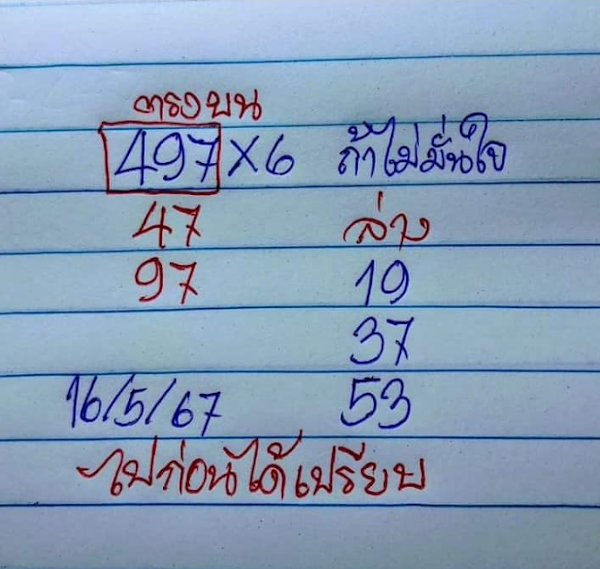 ตรงบน
497×6 ถ้าไม่มั่นใจ
47 ล่าง
97 19
37
16/5/67 53
ไปก่อนได้เปรียบ